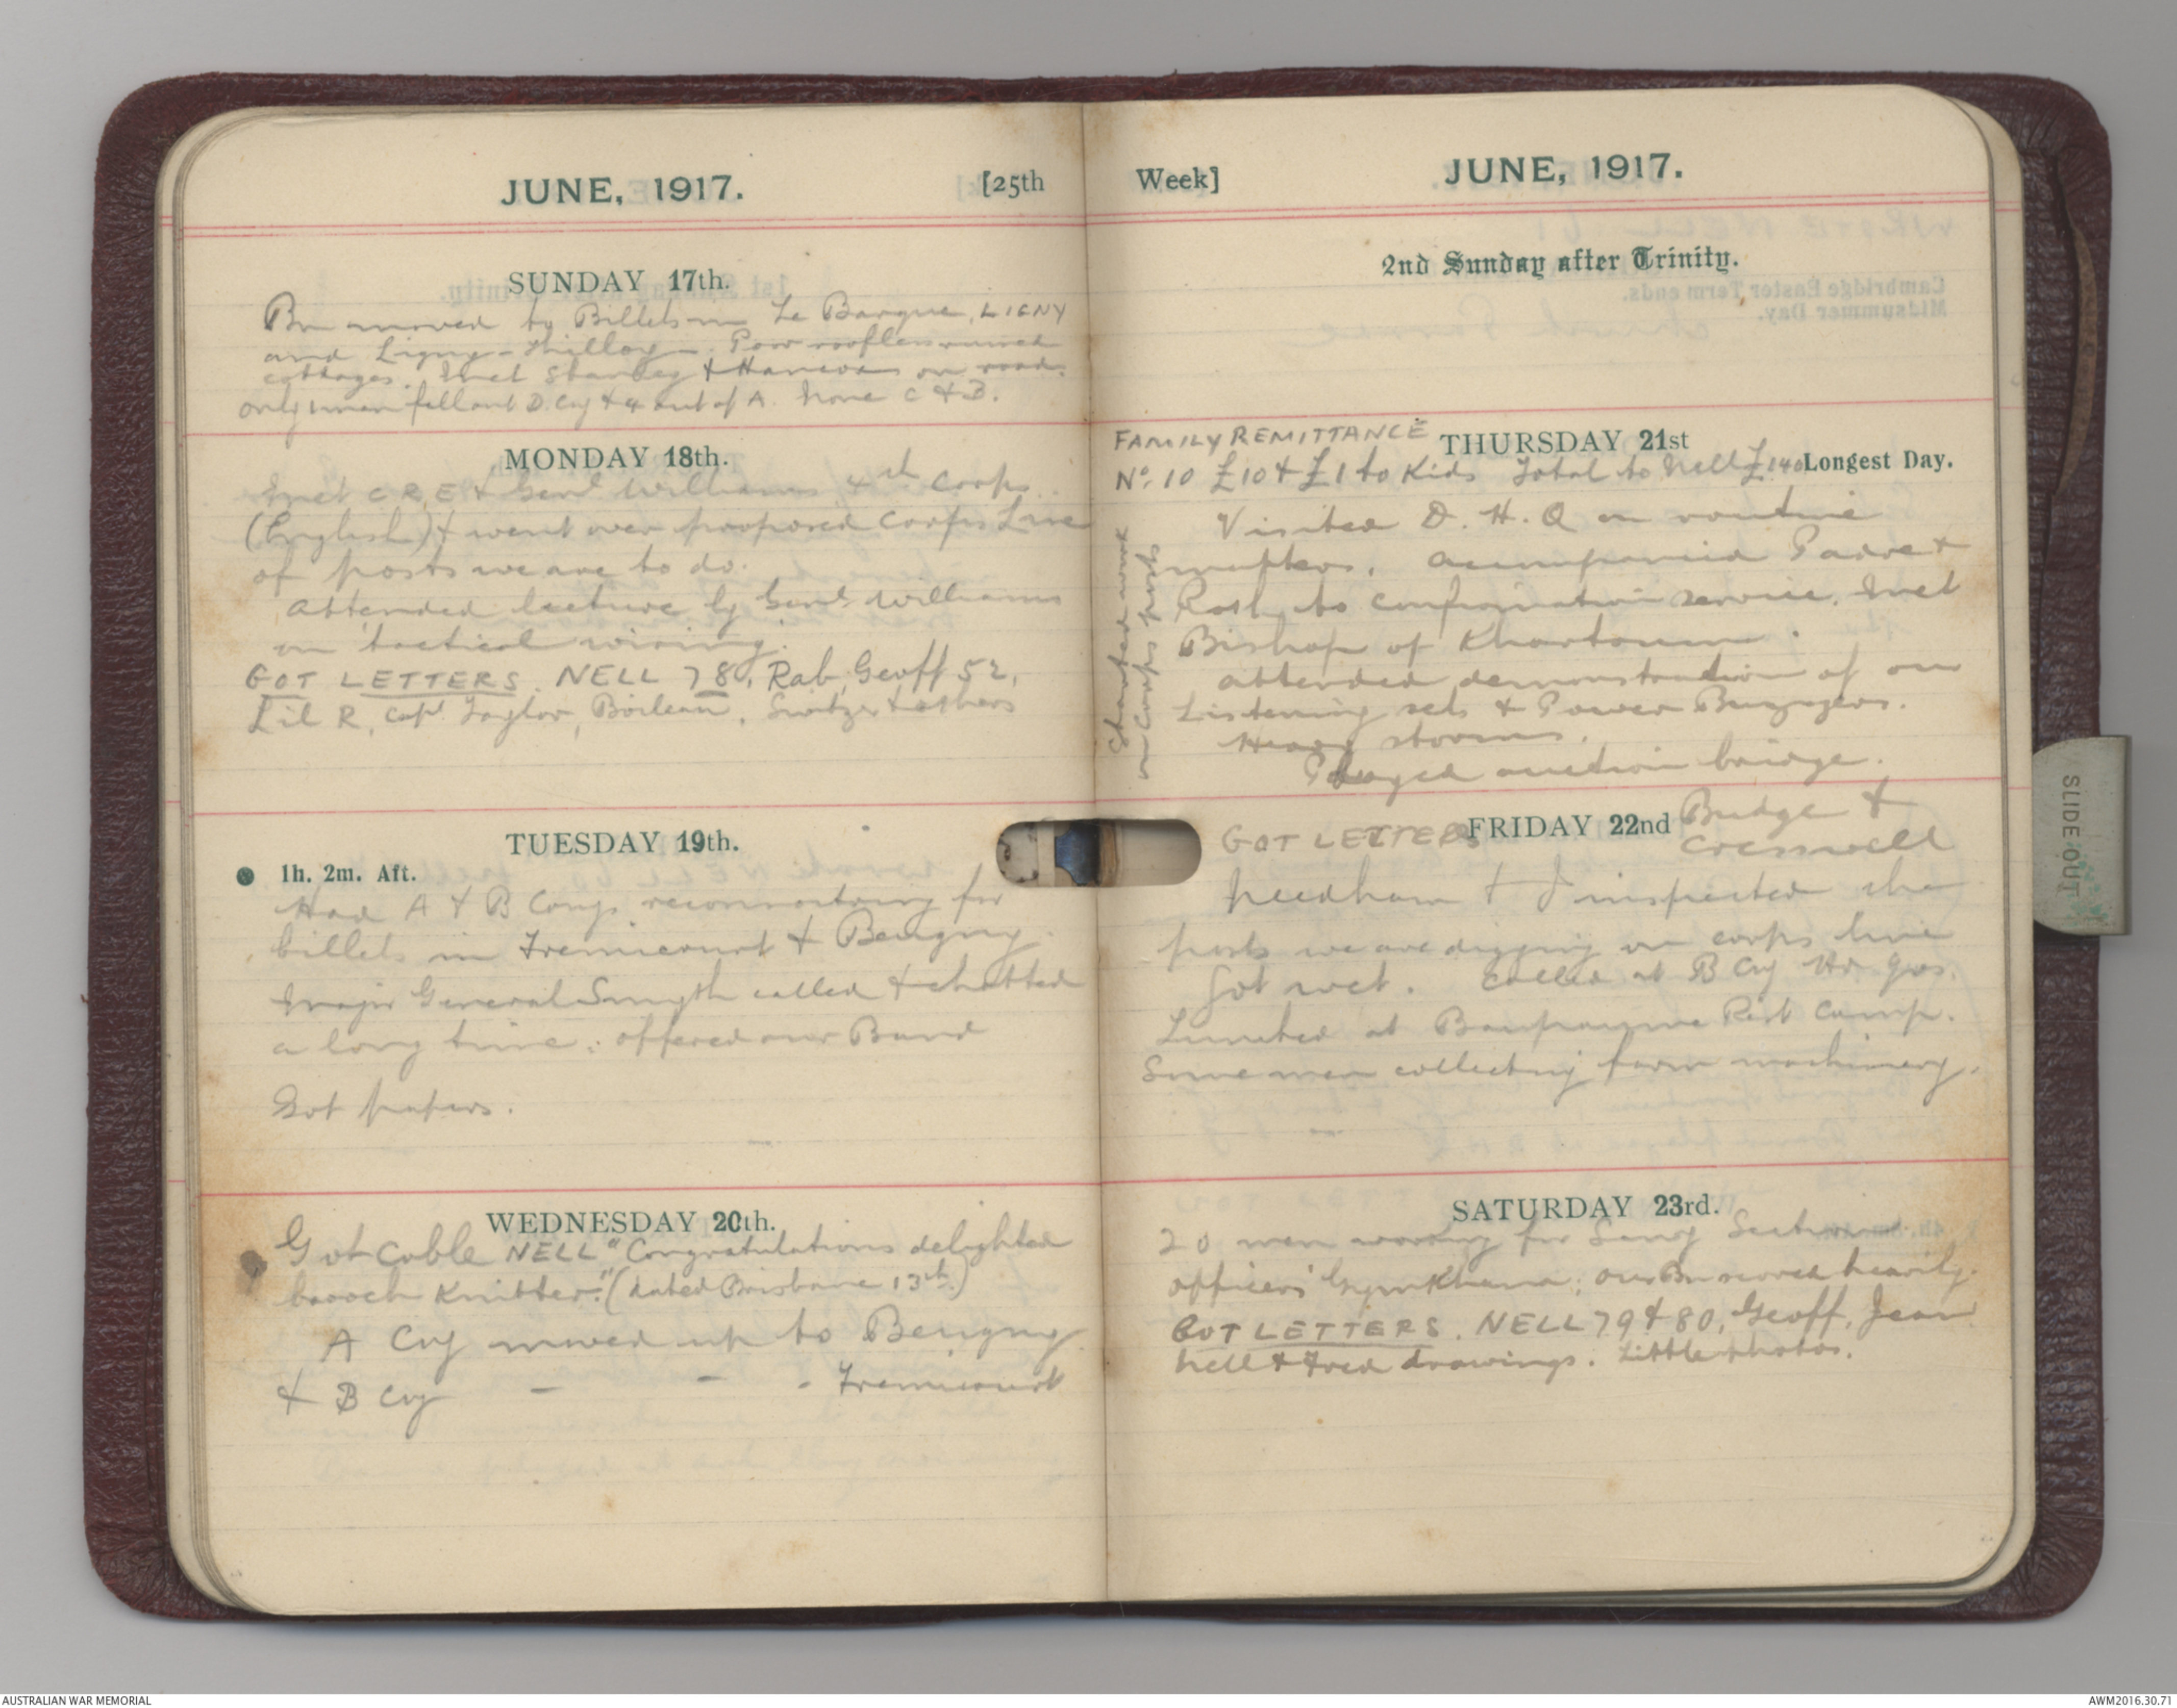 JUNE, 1917.
[25th
SUNDAY 17th.
Bn moved to Billets in Le Barque, LIGNY
and Ligny-Thilloy. Poor roofless ruined
cottages. Met & on road.
only 1 man fell out D. Coy & 4 out of A. None C & B.
MONDAY 18th.
Met C R, E & Genl Williams 4th Corps
(English) & went over proposed Corps Line
of posts we are to do.
Attended lecture by Genl Williams
on tactical wiring.
GOT LETTERS. NELL 78, Rab, Geoff 52,
Lil R, Capt Taylor, Boileau, & others
TUESDAY 19th.
1h. 2m. Aft.
Had A & B Coys reconnoitring for
billets in Fremicourt & Beugny.
Major General Smyth called & chatted
a long time: offered our Band
Got papers.
WEDNESDAY 20th.
Got cable NELL "Congratulations delighted
brooch Knitter." (dated Brisbane 13th.)
A Coy moved up to Beugny
& B Coy - - - Fremicourt
Week]
JUNE, 1917.
2nd Sunday after Trinity.
FAMILY REMITTANCE
THURSDAY 21st
No. 10 £10 & £1 to Kids Total to Nell £140
Longest Day.
Visited D. H. Q on routine
matters. Accompanied Padre &
Rath to confirmation service. Met
Bishop of Khartoum.
attended demonstration of our
Listening sets & Power Buzzers.
Heavy storms.
Played auction bridge.
Started work
on Corps posts
GOT LETTERS
FRIDAY 22nd
Budge &
Cresswell
Needham & I inspected the
posts we are digging on corps line
Got wet. Called at B Coy Hd Qrs.
Lunched at Baupaume Rest Camp.
Some men collecting farm machinery.
SATURDAY 23rd.
20 men working for Section
officers' Gymkhana; our Bn scored heavily.
GOT LETTERS. NELL 79 & 80, Geoff, Jean
Nell & Fred drawings. Little photos.
SLIDE OUT
AUSTRALIAN WAR MEMORIAL
AWM2016.30.71